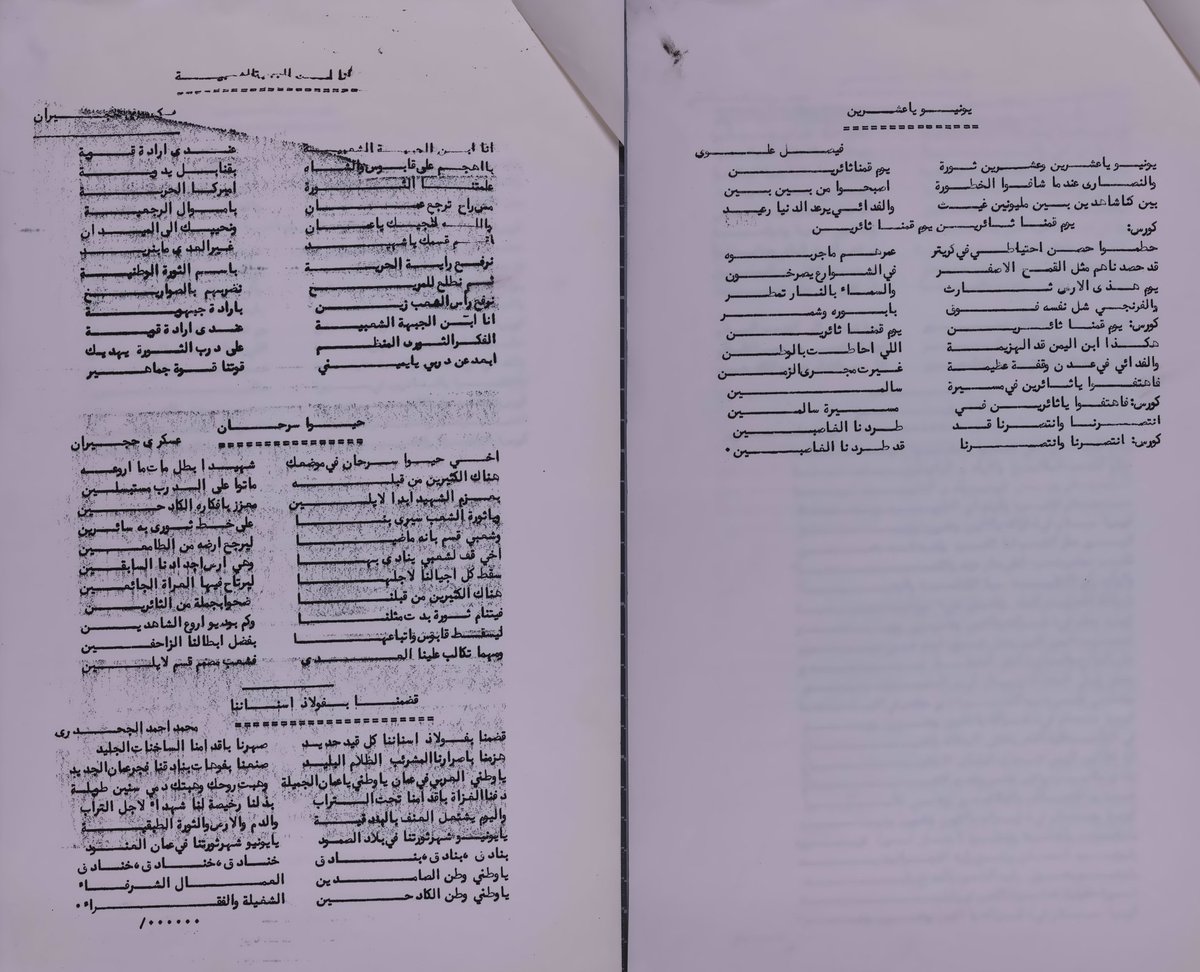 يونيو ياعشرين
فيصل علوي
يونيو ياعشرين وعشرين ثورة يوم قمنا ثائرين
والنصارى عند ما شافوا الخطورة اصبحوا من بين بين
بين كناشاهدين بين مليونين غيث والفدائي يرعد الدنيا رعيد
كورس: يوم قمنا ثائرين يوم قمنا ثائرين
حطموا حصن احتياطي في كريتر عمرهم ماجربوه
قد حصدناهم مثل القمح الاصفر في الشوارع يصرخون
يوم هذي الارض ثارت والسماء بالنار تمطر
والفرنجي شل نفسه فوق بابوره وشمر
كورس: يوم قمنا ثائرين يوم قمنا ثائرين
هكذا ابن اليمن قد الهزيمة اللي احاطت بالوطن
والفدائي في عدن وقفة عظيمة غيرت مجرى الزمن
فاهتفوا ياثائرين في مسيرة سالمين
كورس: فاهتفوا ياثائرين في مسيرة سالمين
انتصرنا وانتصرنا قد طردنا الغاصبين
كورس: انتصرنا وانتصرنا قد طردنا الغاصبين٠
انا ابن الجبهة الشعبية
عسكري حجيران
انا ابن الجبهة الشعبية عندي ارادة قوية
بااهجم على قابوس والشاه بقنابل يدوية
علمتنا الثورة اميركا الحرية
مش راح ترجع عمان باموال الرجعية
والله لاجيبك ياعمان ونحييك الى الميدان
قسمك ياشهيد غير المدى مانريد
نرفع راية الحرية باسم الثورة الوطنية
ثم نطلع للمريخ نضربهم بالصواريخ
نرفع راس الشعب زين بارادة جبهوية
انا ابن الجبهة الشعبية عندي ارادة قوية
الفكر الثوري المنظم على درب الثورة يهديك
ابعد عن دربي يايميني قوتنا قوة جماهير
حيوا سرحان
عسكري حجيران
اخي حيوا سرحان في موضعك شهيدا بطل مات ما اروعه
هناك الكثيرين من قبله ماتوا على الدرب مستبسلين
بعزم الشهيد ابدا لايلين معزز بافكاره الكادحين
وياثورة الشعب سيري بنا على خط ثوري به سائرين
وشعبي قسم بانه ماضيا ليرجع ارضه من الطامعين
اخي قف لشعبي ينادي بها وهي ارض اجدادنا السابقين
سقط كل اجيالنا لاجلها ليرتاح فيها العراة الجائعين
هناك الكثيرين من قبلنا ضحوا بجملة من الثائرين
فيتنام ثورة بدت مثلنا وكم بوديو اروع الشاهدين
ليسقط قابوس واتباعها بفضل ابطالنا الزاحفين
ومهما تكالب علينا العدى فشعب مصمم قسم لايلين
قضمنا بفولاذ اسناننا
محمد احمد الجحدري
قضمنا بفولاذ اسناننا كل قيد حديد صهرنا باقدامنا الساخنات الجليد
هزمنا باصرارنا المشرئب الظلام البليد صنعنا بفوهات بنادقنا فجر عمان الجديد
ياوطني العربي في عمان ياوطني ياعمان الجميلة وهبت روحك وهبتك دمي سنين طويلة
دفنا الغزاة باقدامنا تحت التراب بذلنا رخيصة لنا شهداء لاجل التراب
واليوم يشتعل العنف بالبندقية والدم والارض والثورة الطبقية
يايونيو شهر ثورتنا في بلاد الصمود يايونيو شهر ثورتنا في عمان
بنادق ،بنادق ،بنادق خنادق ،خنادق ،خنادق
ياوطني وطن الصامدين العمال الشرفاء
ياوطني وطن الكادحين الشغيلة والفقراء٠
/٠٠٠٠٠٠